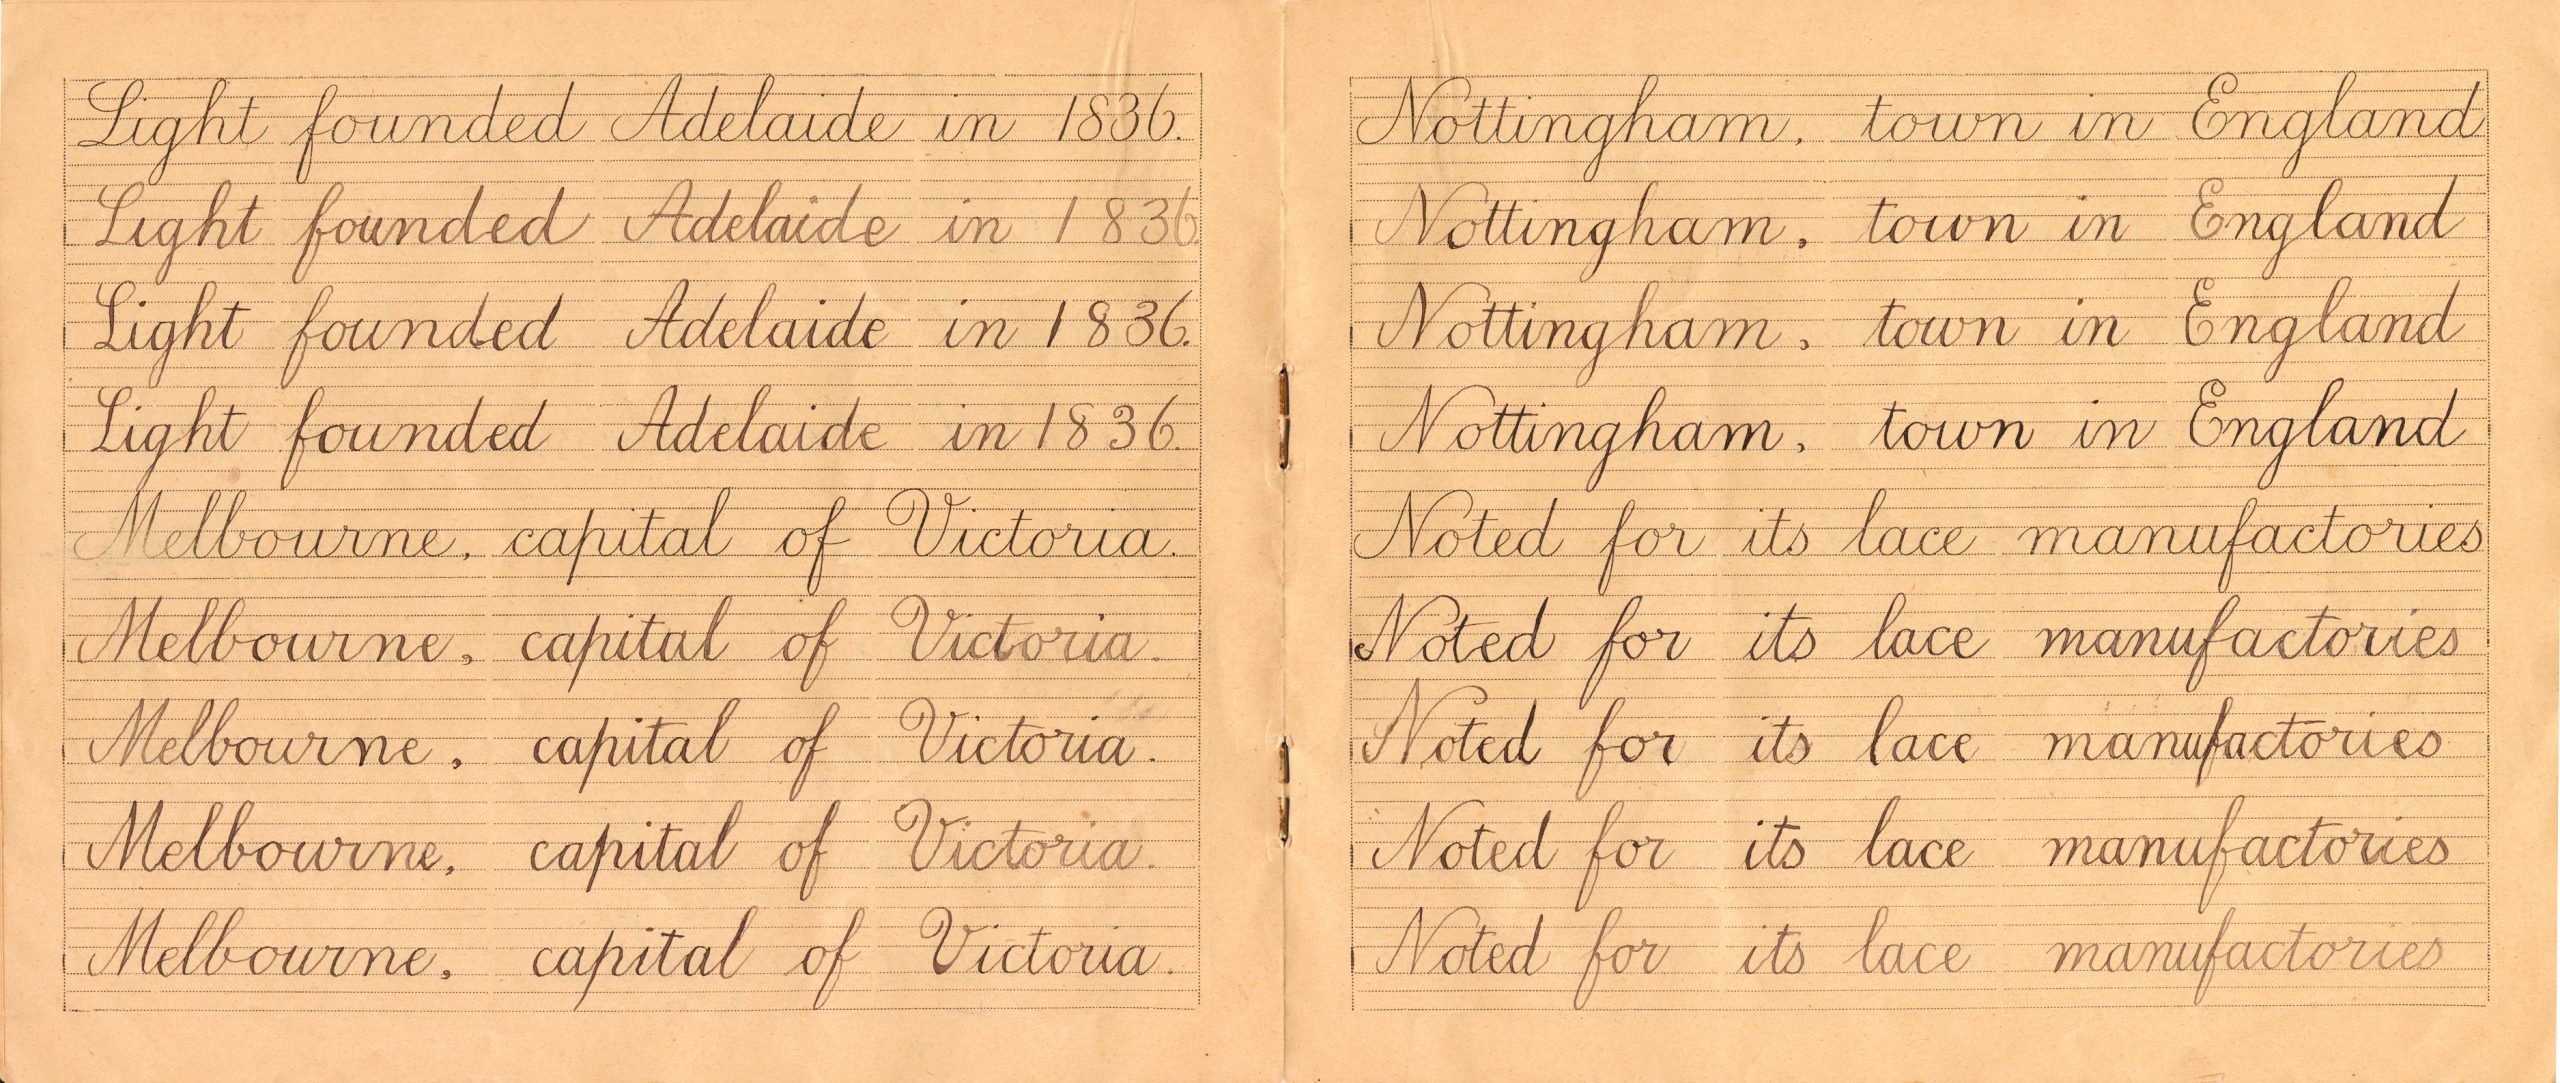 Light founded Adelaide in 1836.
Light founded Adelaide in 1836
Light founded Adelaide in 1836.
Light founded Adelaide in 1836.
Melbourne, capital of Victoria.
Melbourne, capital of Victoria.
Melbourne, capital of Victoria.
Melbourne, capital of Victoria.
Melbourne, capital of Victoria.
Nottingham, town in England
Nottingham, town in England
Nottingham, town in England
Nottingham, town in England
Noted for its lace manufactories
Noted for its lace manufactories
Noted for its lace manufactories
Noted for its lace manufactories
Noted for its lace manufactories